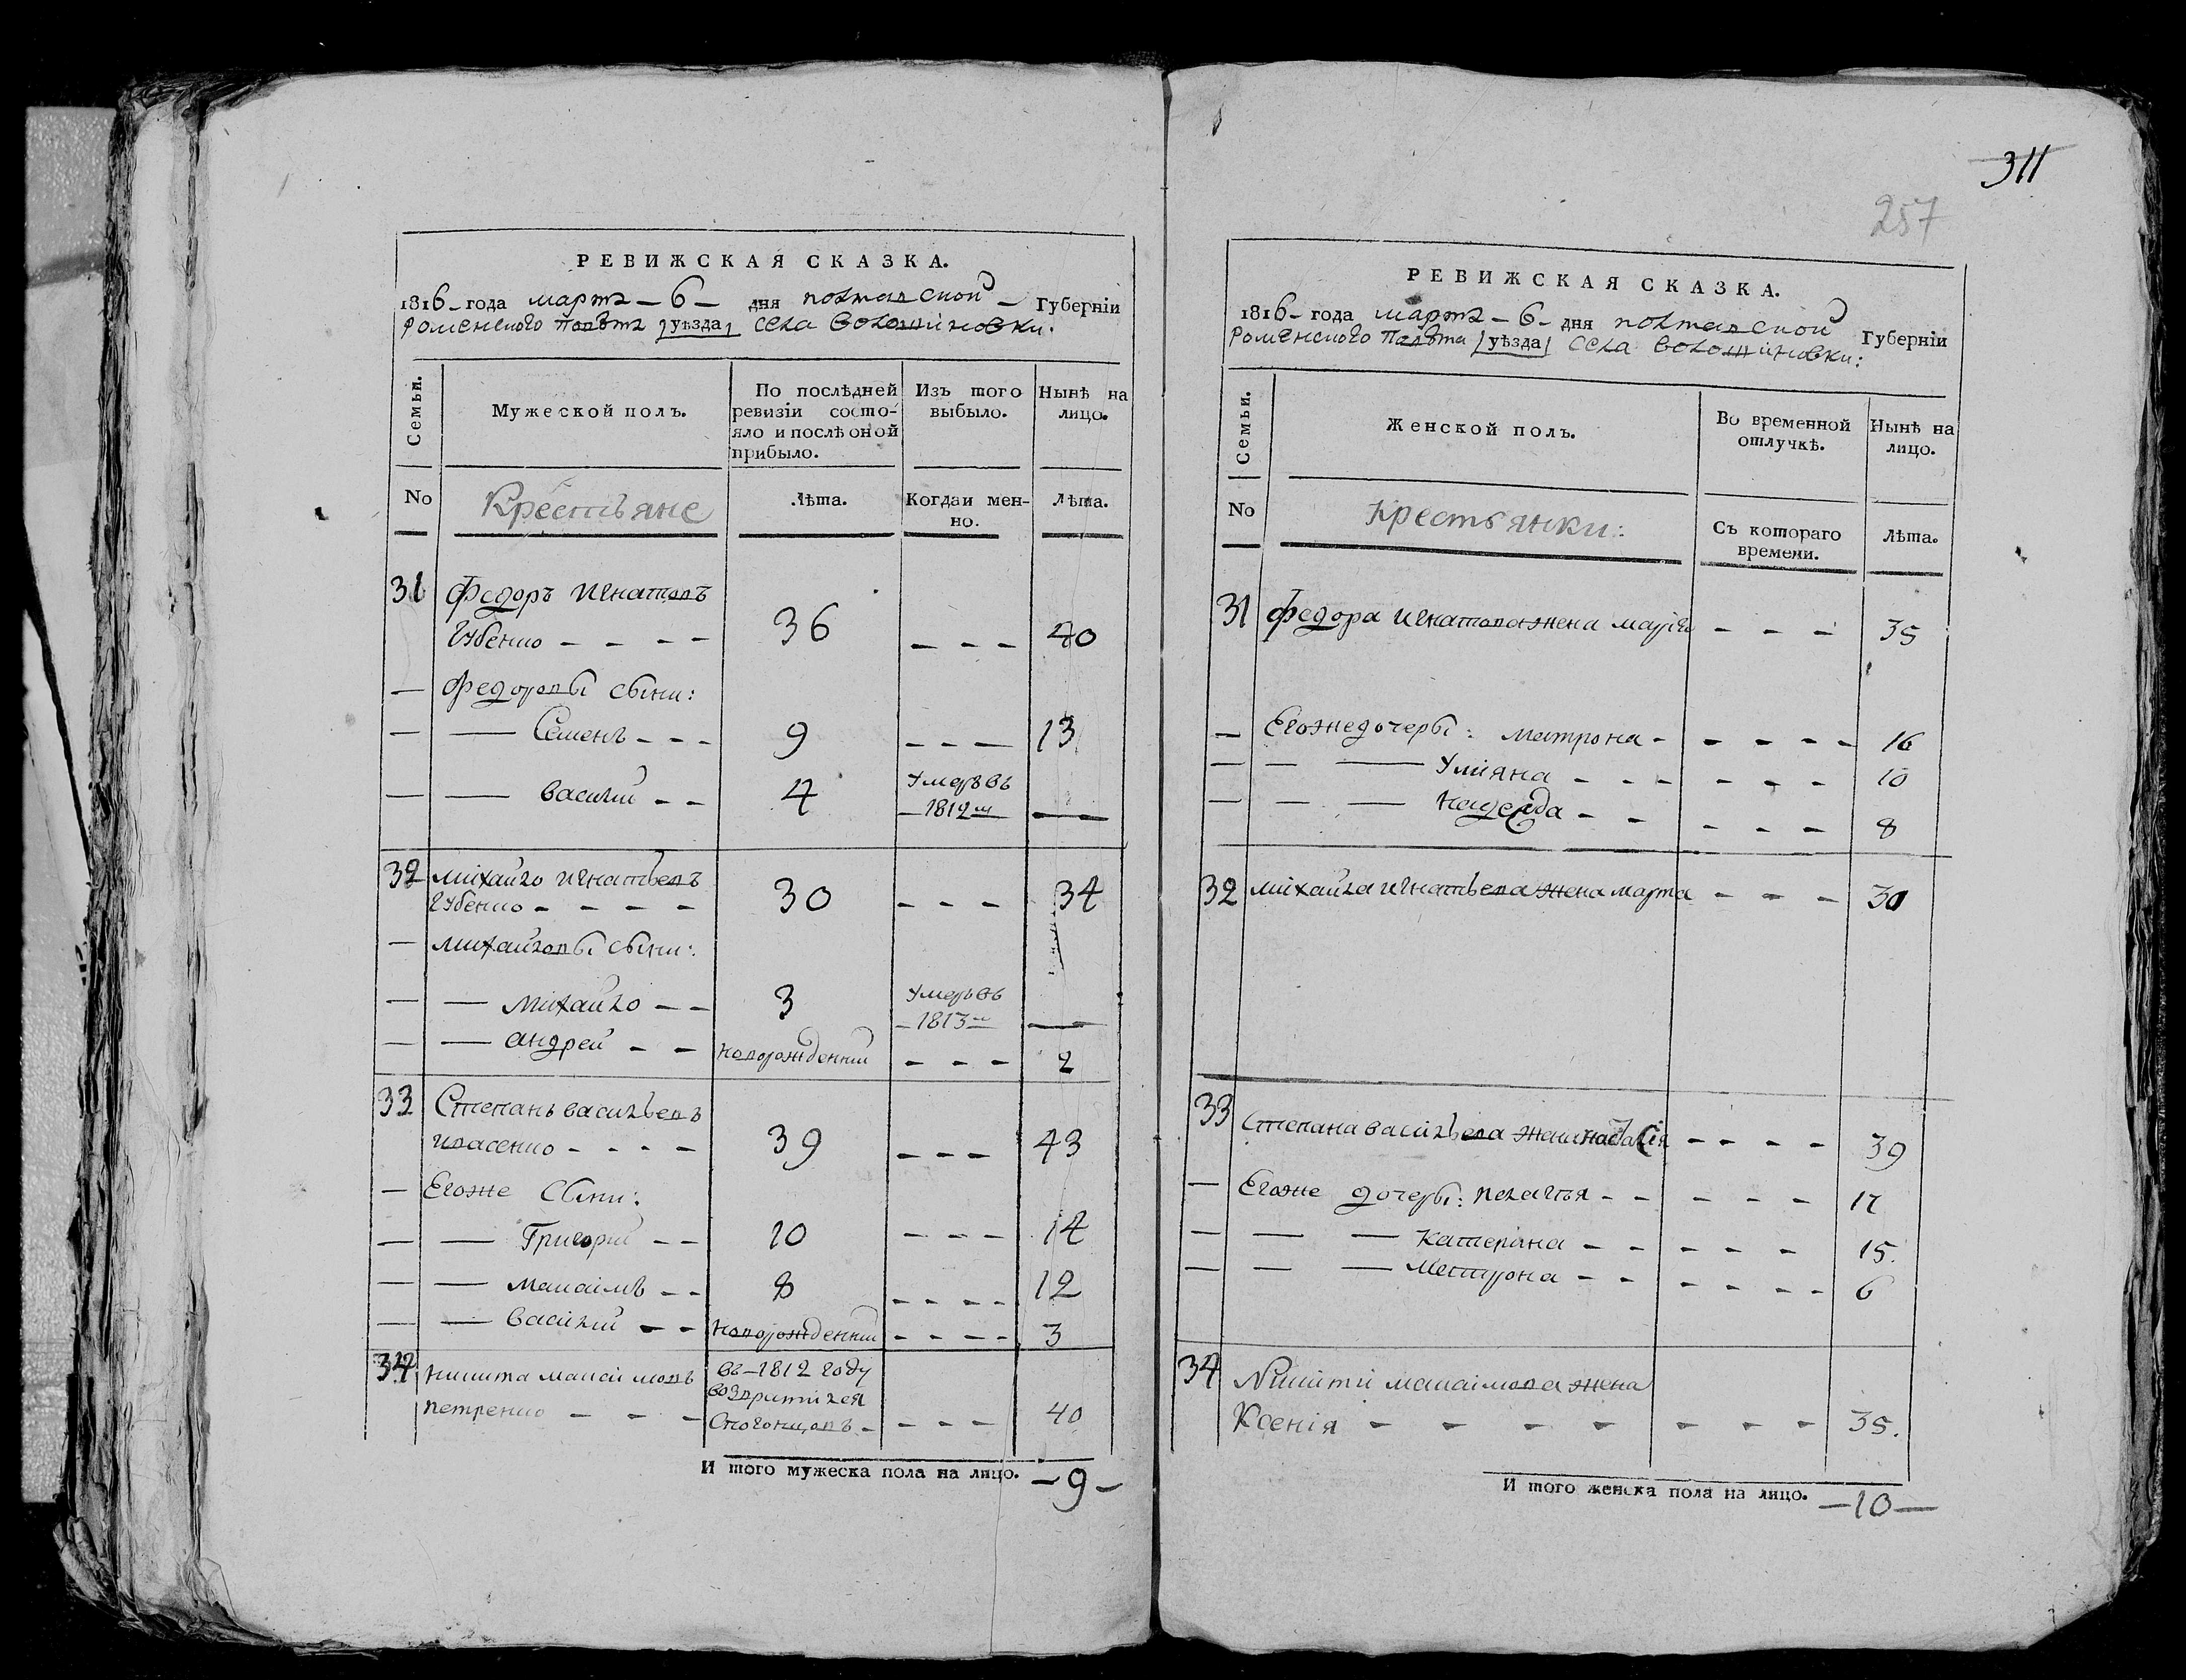 РЕВИЖСКАЯ СКАЗКА.
1816 года мартъ 6 дня полтавской Губерніи
роменского повѣта [уѣзда] села волошиновки:
Семьи.
Мужеской полъ.
По послѣдней ревизіи состояло и послѣ оной прибыло.
Изъ того выбыло.
Нынѣ на лицо.
No
Крестьяне
Лѣта.
Когда и менно.
Лѣта.
31 Федоръ игнатовъ
Губенко 36 40
Федоровы сыни:
Семенъ 9 13
василий 4 умеръ въ 1812м
32 михайло игнатьевъ
губенко 30 34
михайловы сыни:
михайло 3 умеръ въ 1813м
андрей новорожденний 2
33 Степанъ васильевъ
власенко 39 43
Егоже сыни:
Григорий 10 14
максимъ 8 12
василий новорожденний 3
34 никита максимовъ въ 1812 году
петренко 40
И того мужеска пола на лицо. 9
311
257
РЕВИЖСКАЯ СКАЗКА.
1816 года мартъ 6 дня полтавской Губерніи
роменского повѣта [уѣзда] села волошиновки:
Семьи.
Женской полъ.
Во временной отлучкѣ.
Нынѣ на лицо.
No
Крестьянки:
Съ котораго времени.
Лѣта.
31 федора игнатова жена марія 35
Егоже дочеры: матрона 16
Улияна 10
8
32 михайла игнатьева жена марта 30
33 степана васильева жена 39
Егоже дочеры: пелагия 17
катерина 15.
Матрона 6
34 Никити максимова жена
Ксенія 35.
И того женска пола на лицо. 10